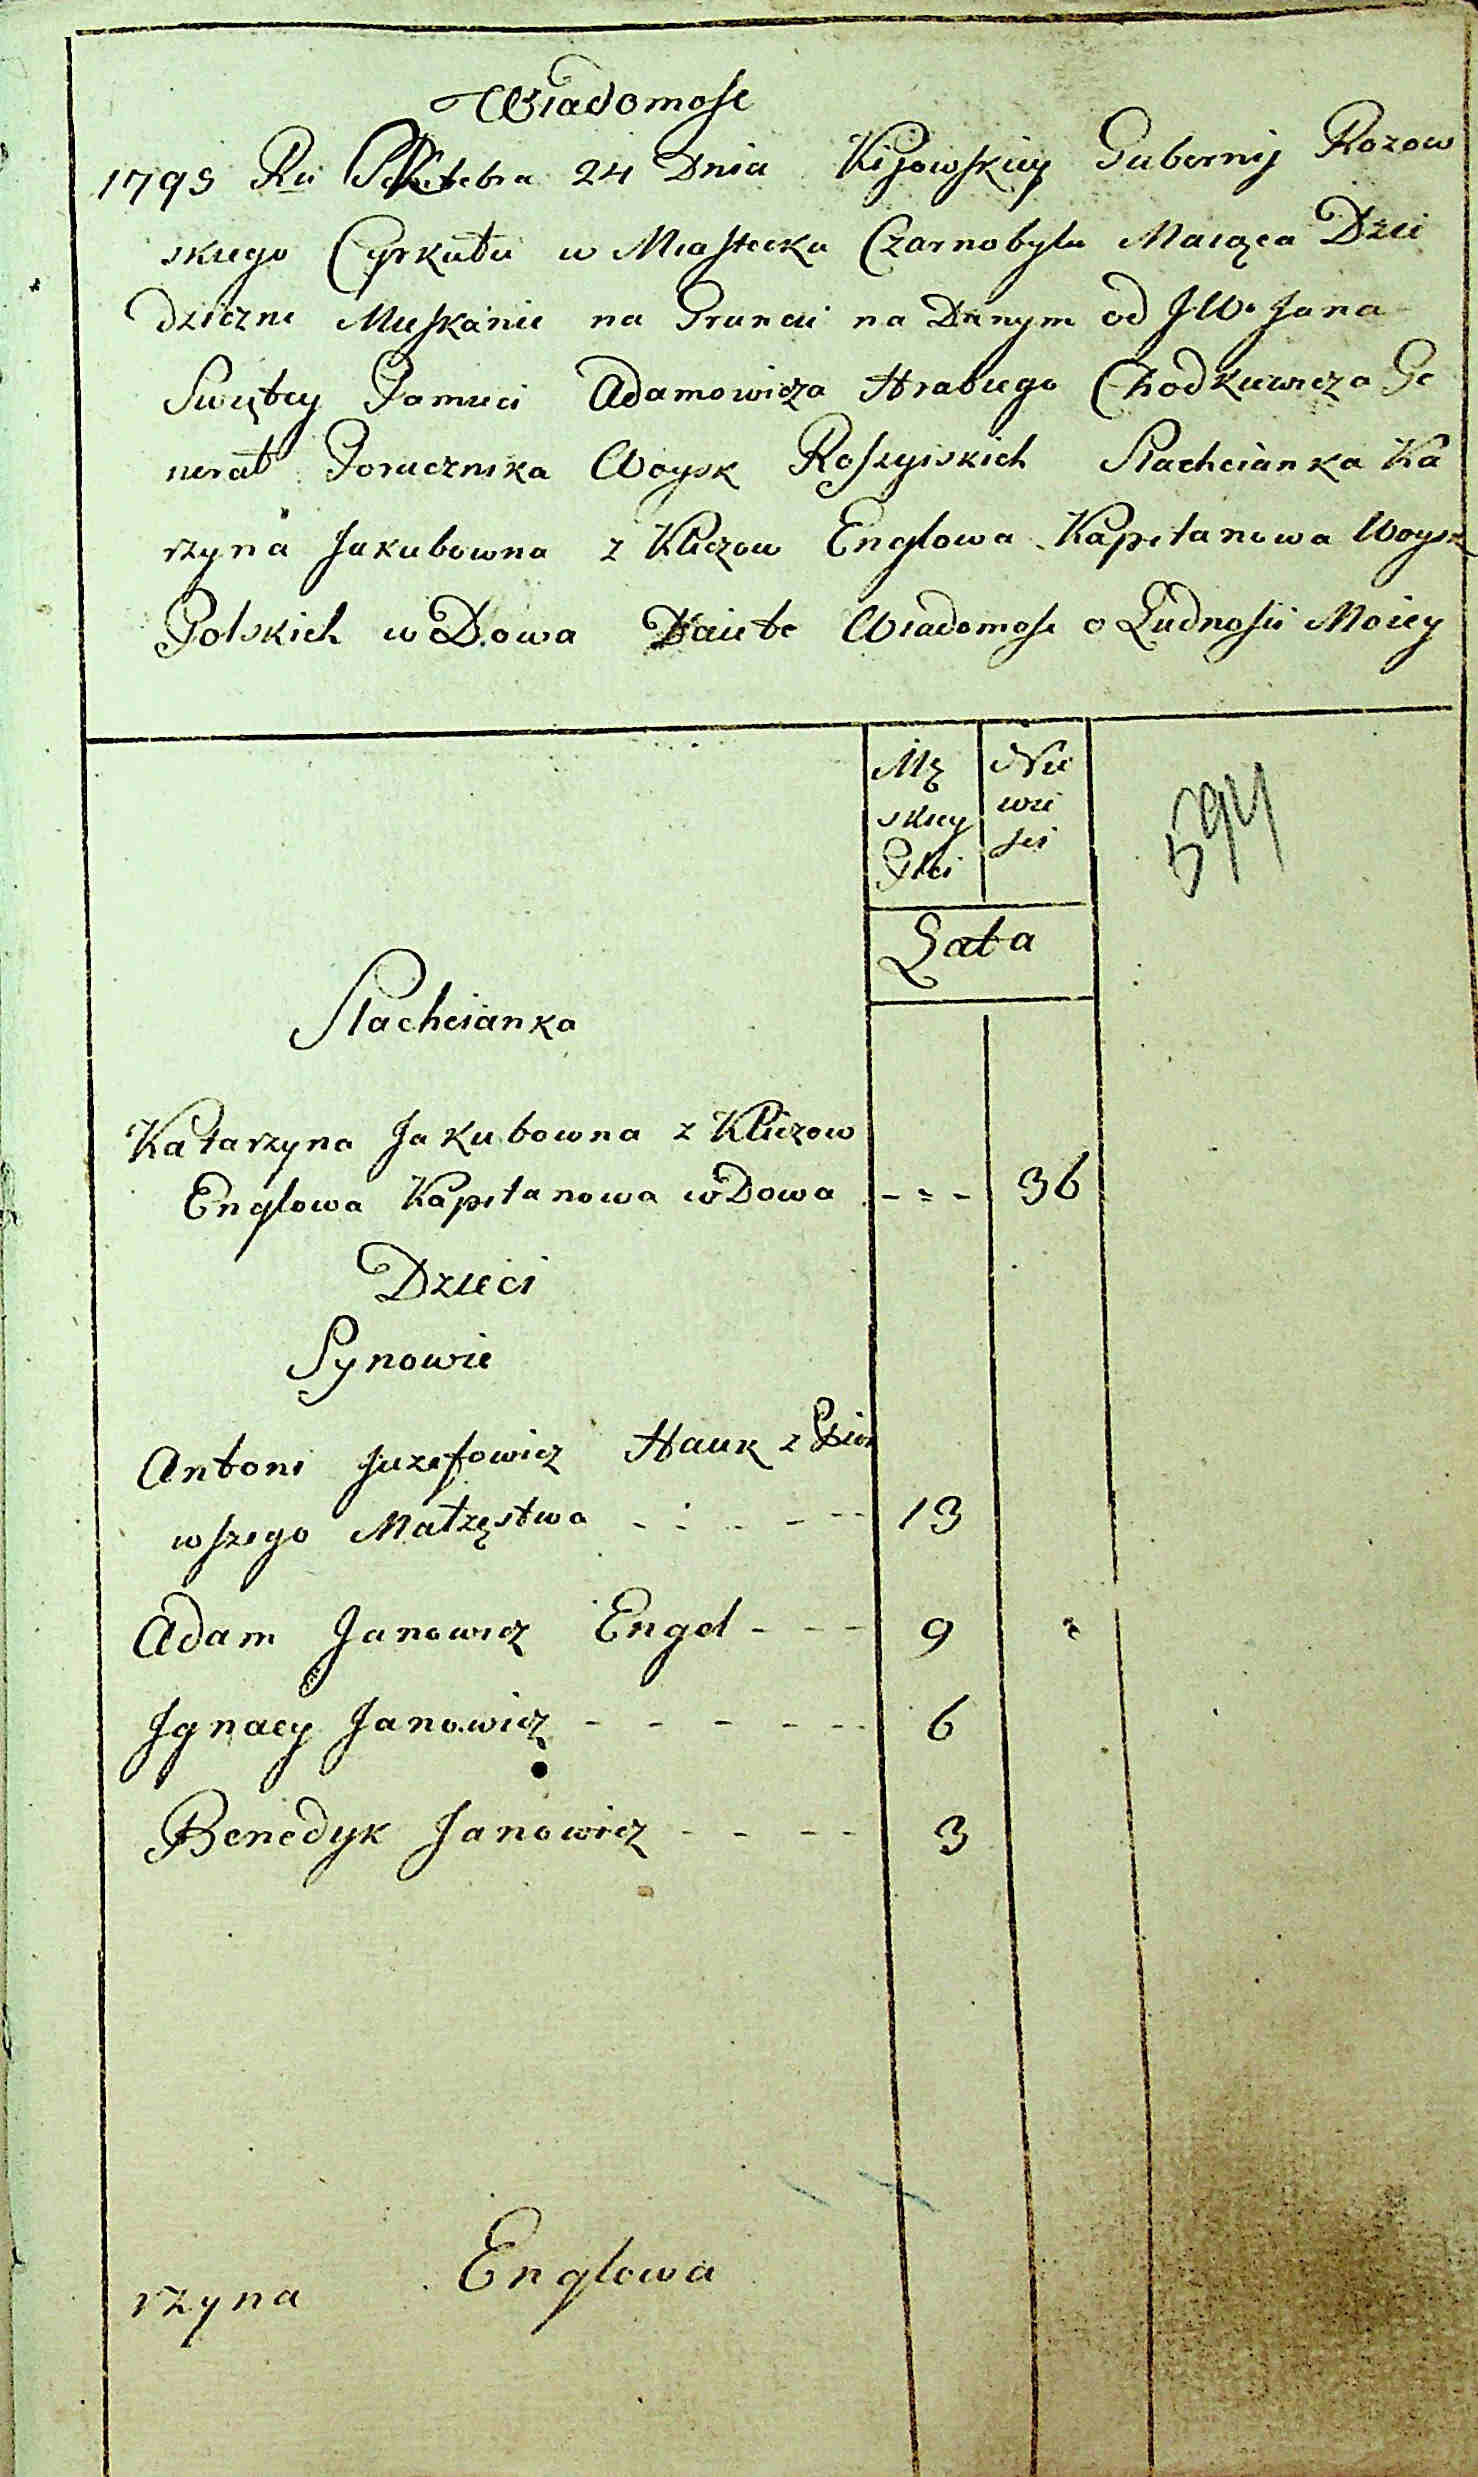 Wiadomosc
1795 Ru Oktebra 24 Dnia Kijowskiey Gubernij Rozow
skiego Cyrkułu w Miastecku Czarnobylu Maiąca Dzie
dziczne Mieskanie na Gruncie na Danym od JW. Jana
Swiętey Pamieci Adamowicza Hrabiego Chodkiewicza Ge
nerał Porucznika Woysk Rossyiskich Slachcianka Ka
rzyna Jakubowna z Kliczow Englowa Kapitanowa Woysk
Polskich wDowa Daie te Wiadomosc o Ludnosci Moiey
Mę
skiey
Płci
Nie
wie
sci
594
Lata
Slachcianka
Katarzyna Jakubowna z Kliczow
Englowa Kapitanowa wDowa - - - 36
Dzieci
Synowie
Antoni Juzefowicz Hauk z Pier
wszego Małzęstwa - - - - - 13
Adam Janowicz Engel - - - 9
Jgnacy Janowicz - - - - - - 6
Benedyk Janowicz - - - - 3
rzyna Englowa